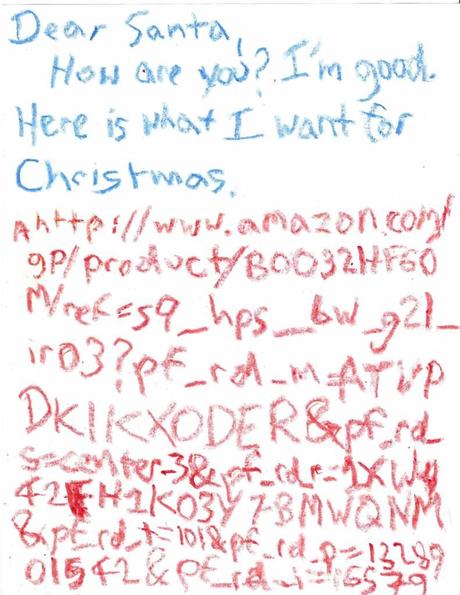 Dear Santa,
How are you? I'm good.
Here is what I want for
Christmas.
http://www.amazon.com/
gp/product/B0032HF60
M/ref=s9_hps_bw_g21_
ir03?pf_rd_m=ATVP
DKIKX0DER&pf_rd_
s=center-3&pf_rd_r=1XWW
42FH1K03Y7BMWQNM
&pf_rd_t=101&pf_rd_p=13289
01542&pf_rd_i=16579